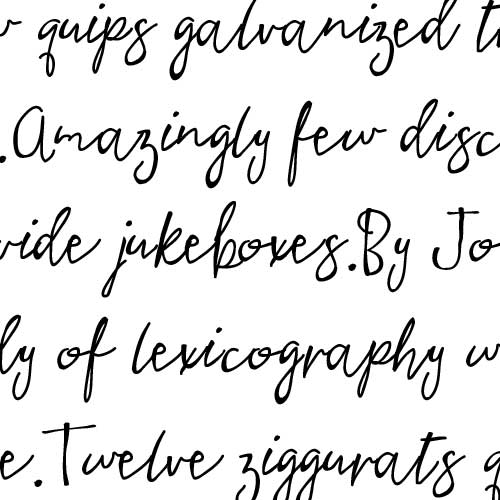 quips galvanized
.Amazingly few disc
vide jukeboxes.By Jo
ly of lexicography w
e.Twelve ziggurats q